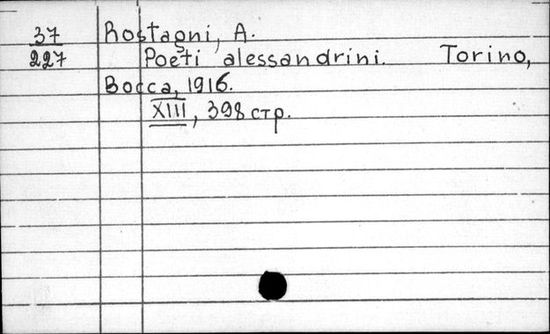 37
227
Rostagni, A.
Poeti alessandrini. Torino,
Bocca, 1916.
XIII, 398 стр.